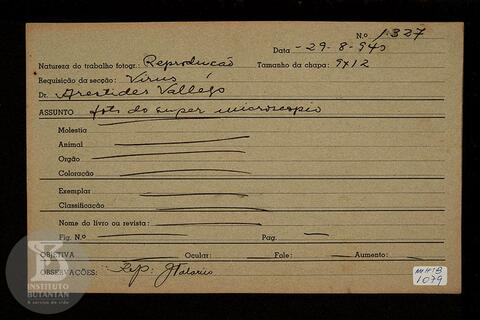 N.º 1327
Data -29-8-940
Natureza do trabalho fotogr.: Reproducão
Tamanho da chapa: 9x12
Requisição da secção: Virus
Dr. Arestides Vallejo
ASSUNTO foto do super microscopio
Molestia
Animal
Orgão
Coloração
Exemplar
Classificação
Nome do livro ou revista:
Fig. N.º Pag.
OBJETIVA Ocular: Fole: Aumento:
OBSERVAÇÕES: Rep:
MHIB
1079
INSTITUTO
BUTANTAN
A serviço da vida